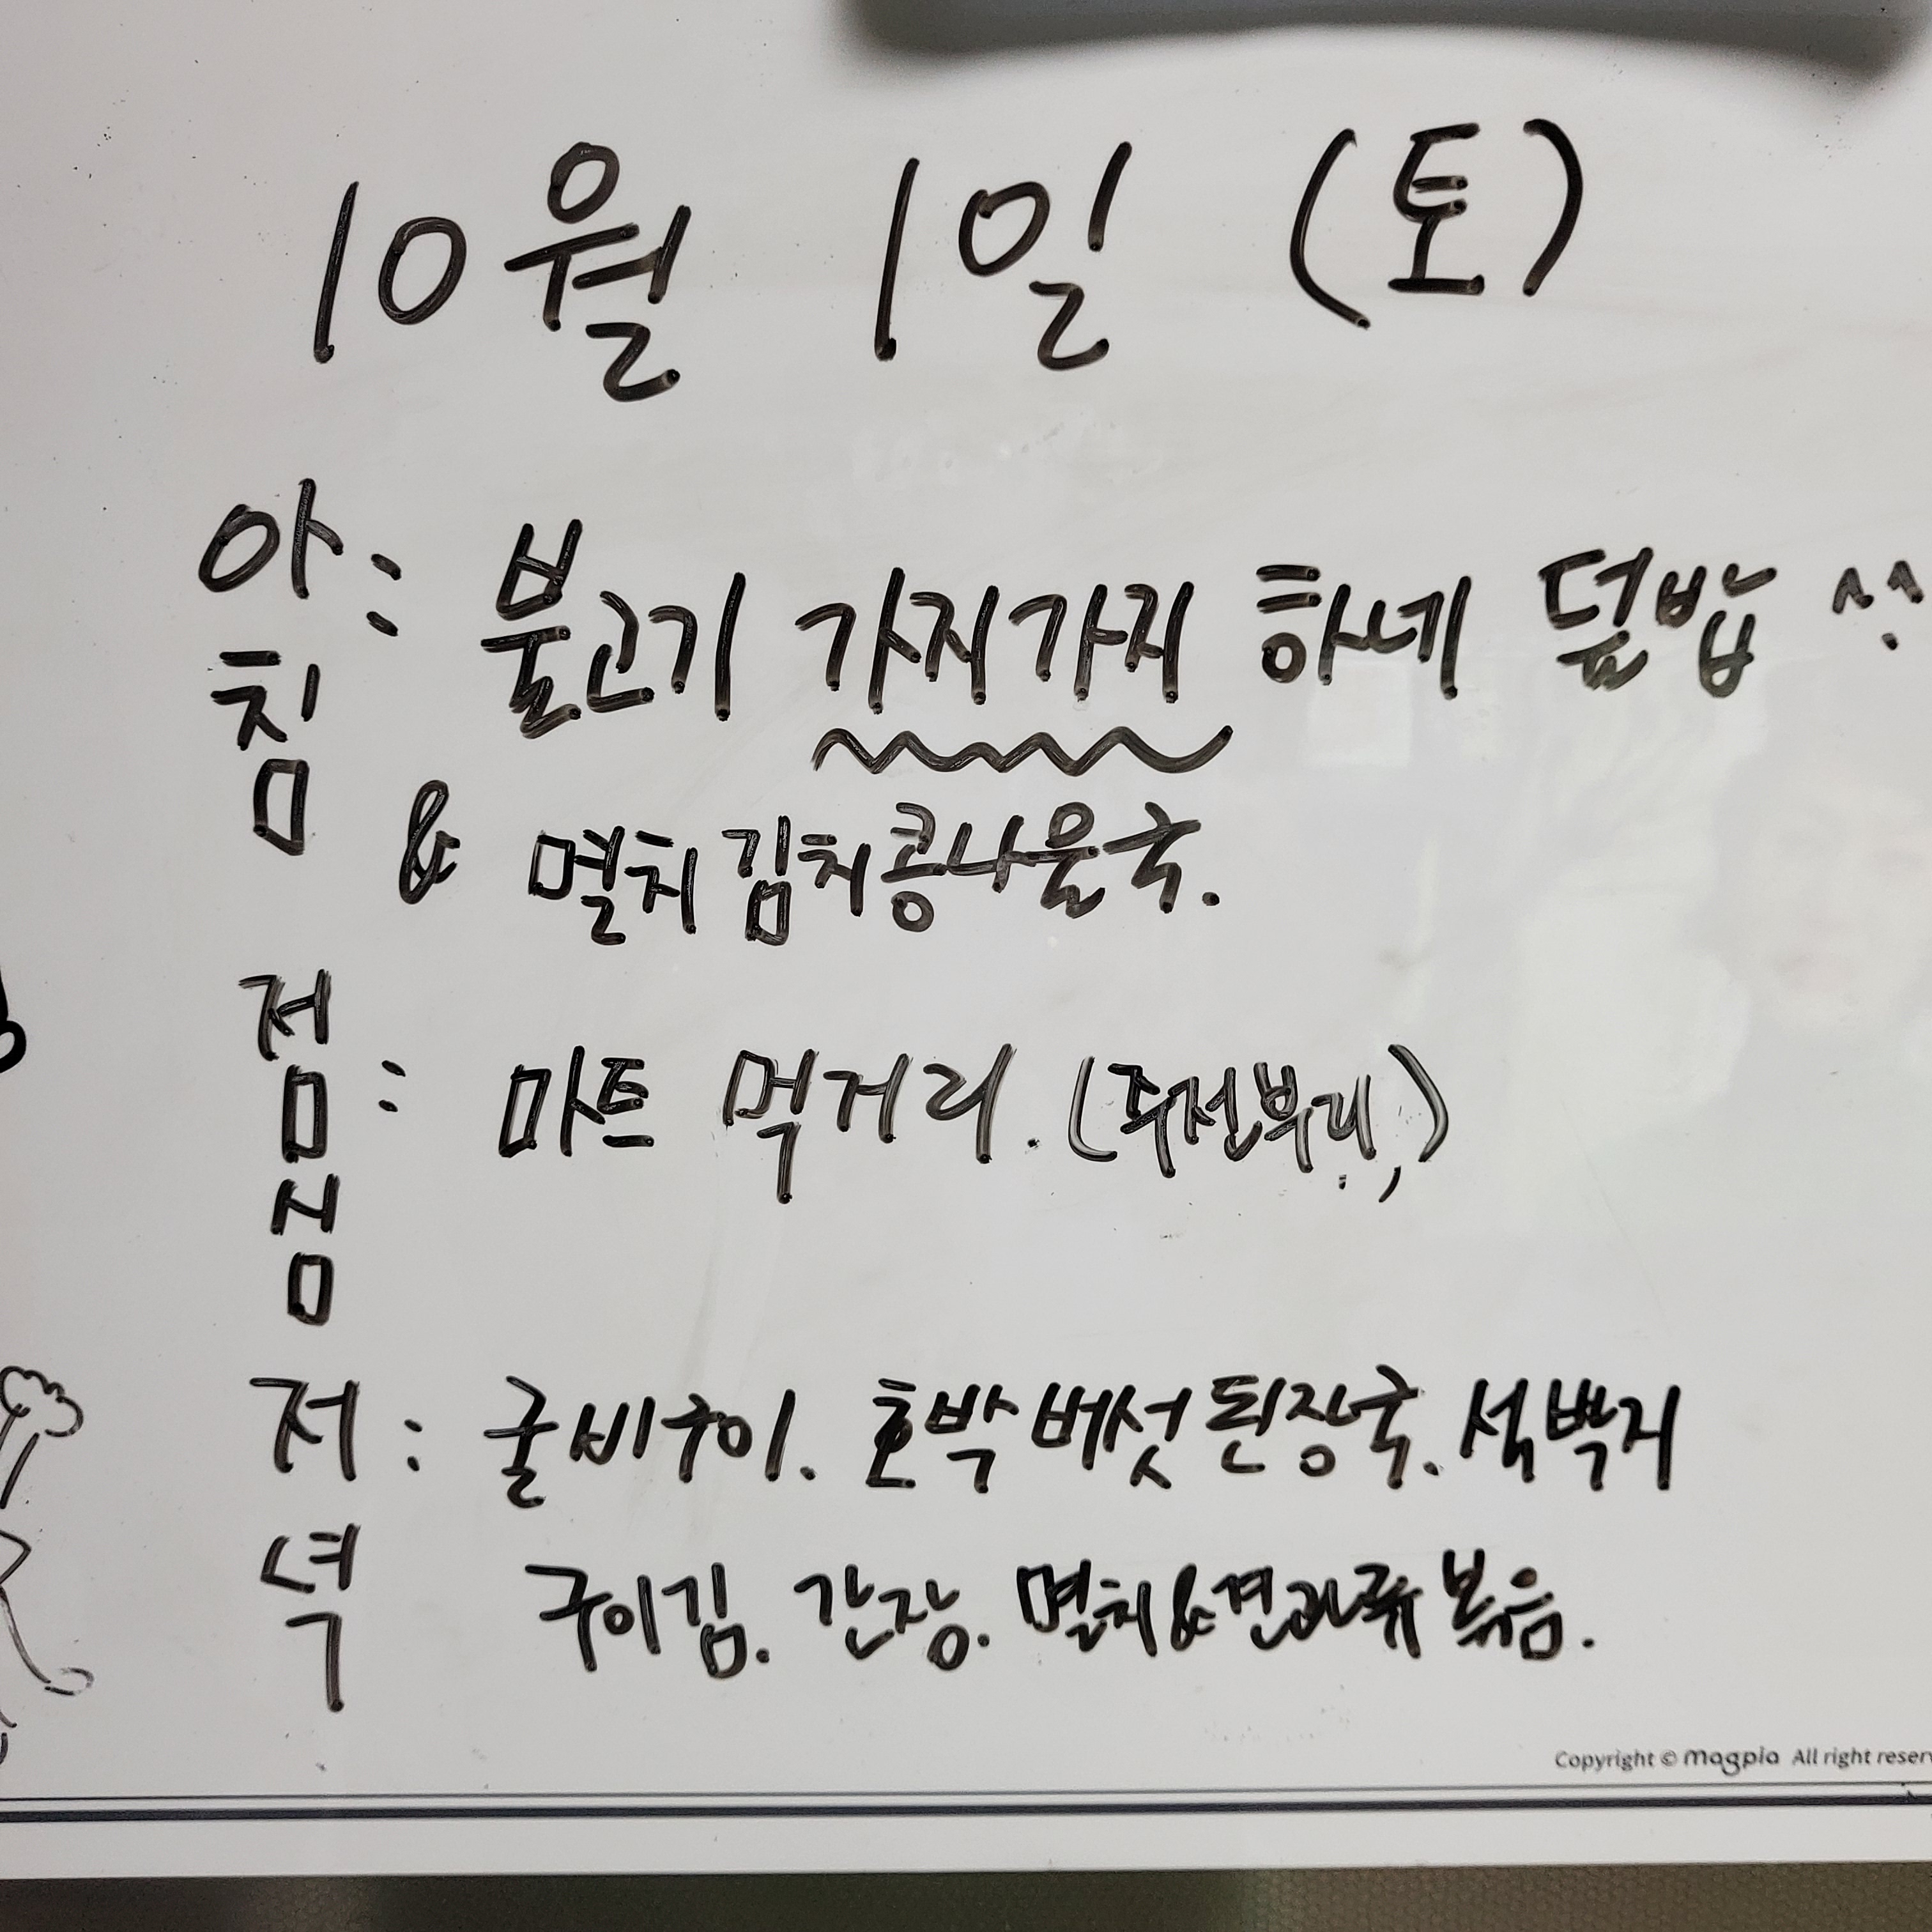 10월 1일 (토)
아침 : 불고기 가지가지 하네 덮밥 ^^
& 멸치김치콩나물국.
점심 : 마트 먹거리. (주전부리,)
저녁 : 굴비구이. 호박버섯된장국. 석박지
구이김. 간장. 멸치&견과류볶음.
Copyright © magpia All right reser